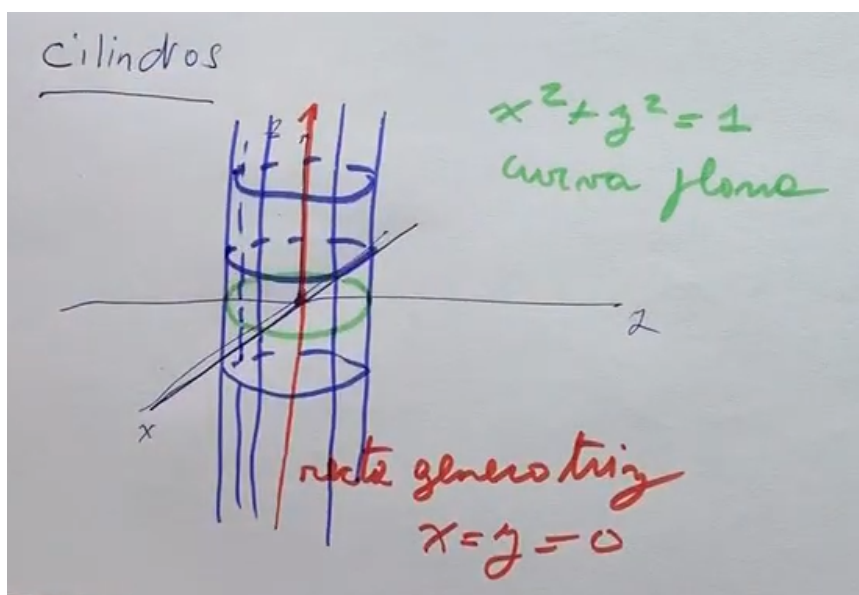 Cilindros
z
x² + y² = 1
curva plana
y
x
recta generatriz
x = y = 0